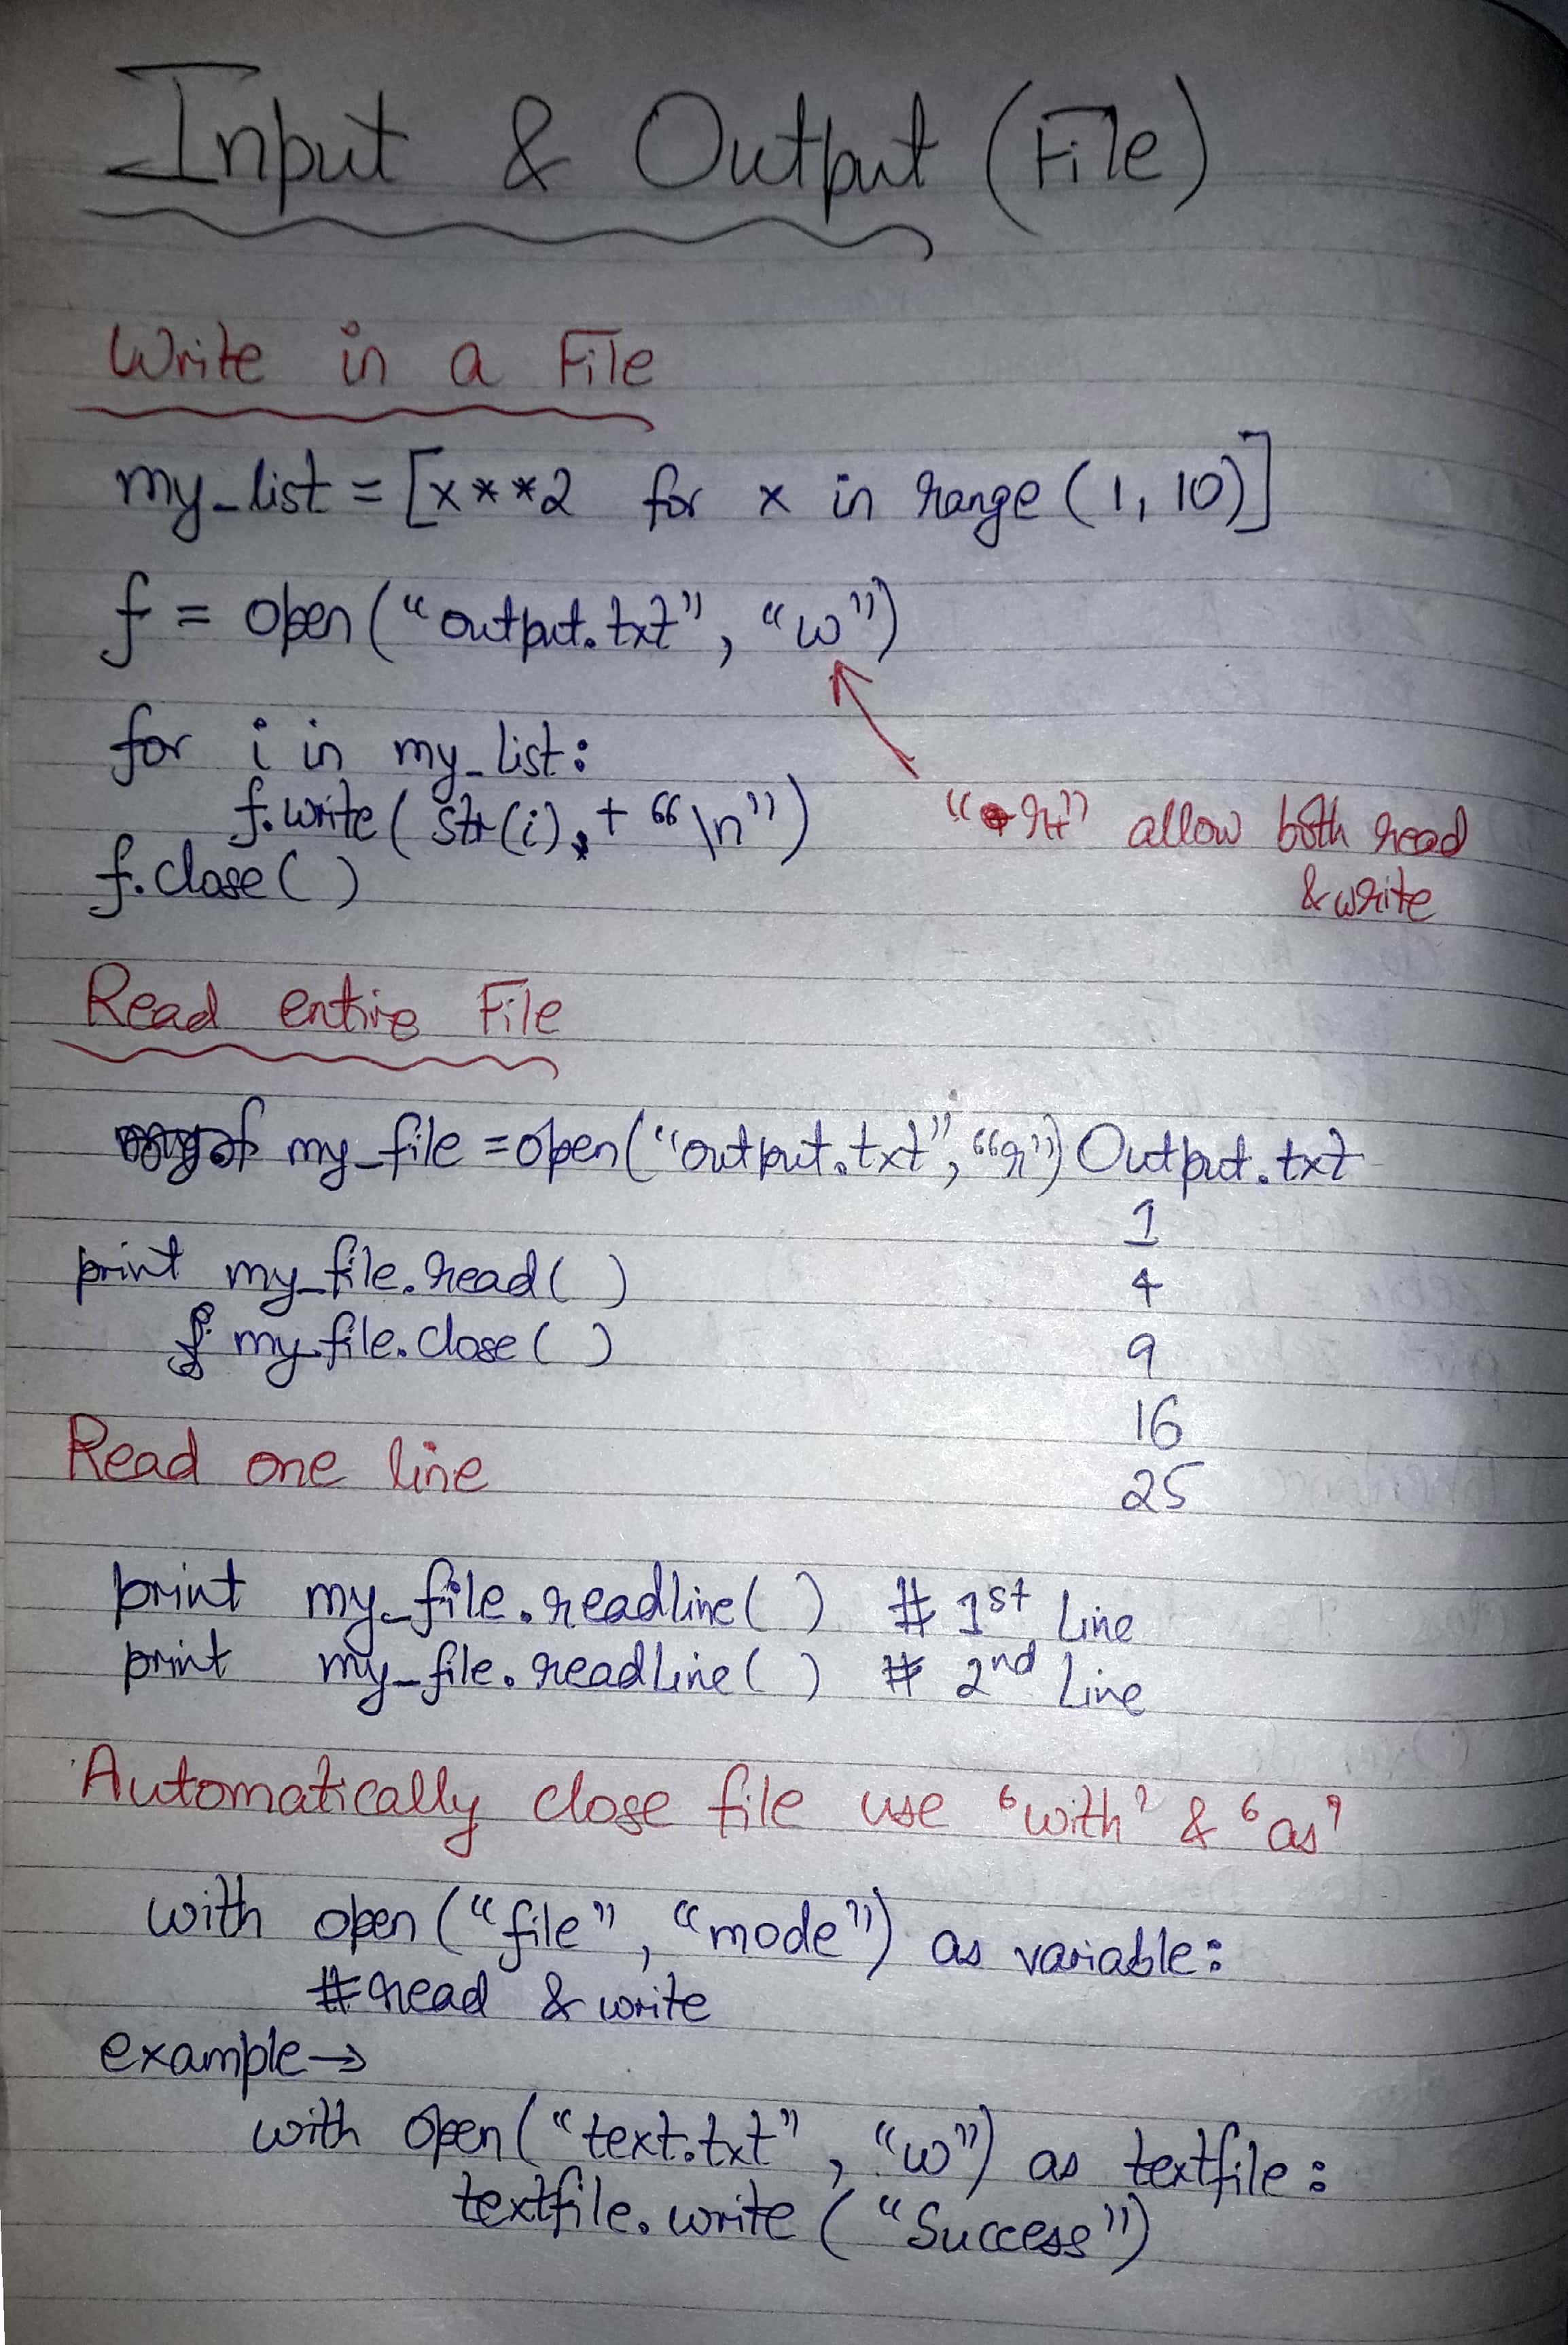 Input & Output (File)
Write in a File
my_list = [x**2 for x in range (1, 10)]
f = open ("output.txt", "w")
for i in my_list:
f.write ( str(i), + "\n")
"r+" allow both read
& write
f.close ( )
Read entire File
my_file = open("output.txt", "r") Output.txt
1
print my_file.read ( )
4
my_file.close ( )
9
16
Read one line
25
print my_file.readline ( ) # 1st Line
print my_file.readLine ( ) # 2nd Line
Automatically close file use 'with' & 'as'
with open ("file", "mode") as variable:
#read & write
example→
with open ("text.txt", "w") as textfile:
textfile.write ("Success")